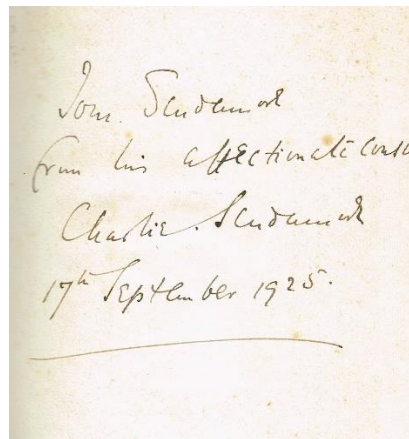 Tom. Scudamore
from his affectionate cous
Charlie. Scudamore
17th September 1925.